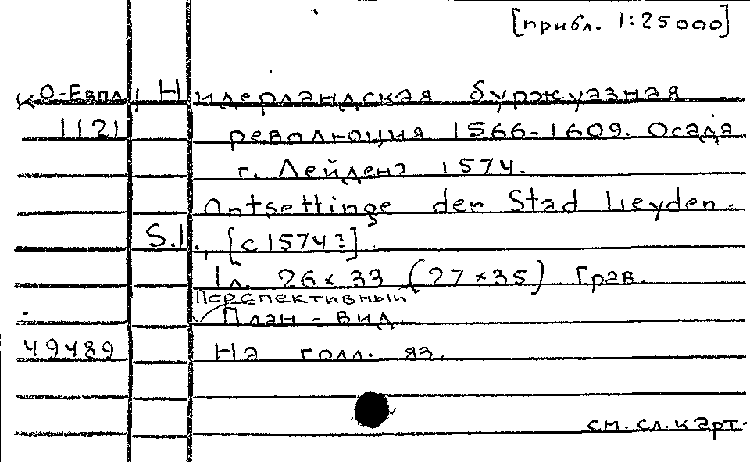 [прибл. 1:25000]
К О-Евпл Нидерландская буржуазная
1121 революция 1566-1609. Осада
г. Лейдена 1574.
Ontsettinge der Stad Leyden.
S.l., [с 1574?].
1 л. 26 x 33 (27 x 35) Грав.
Перспективный
План - вид.
49489 На голл. яз.
см. сл. карт.